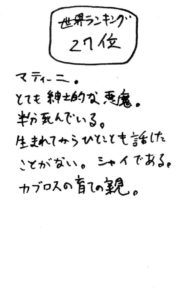 世界ランキング
27位
マティーニ。
とても紳士的な悪魔。
半分死んでいる。
生まれてからひとことも話した
ことがない。シャイである。
カブロスの育ての親。